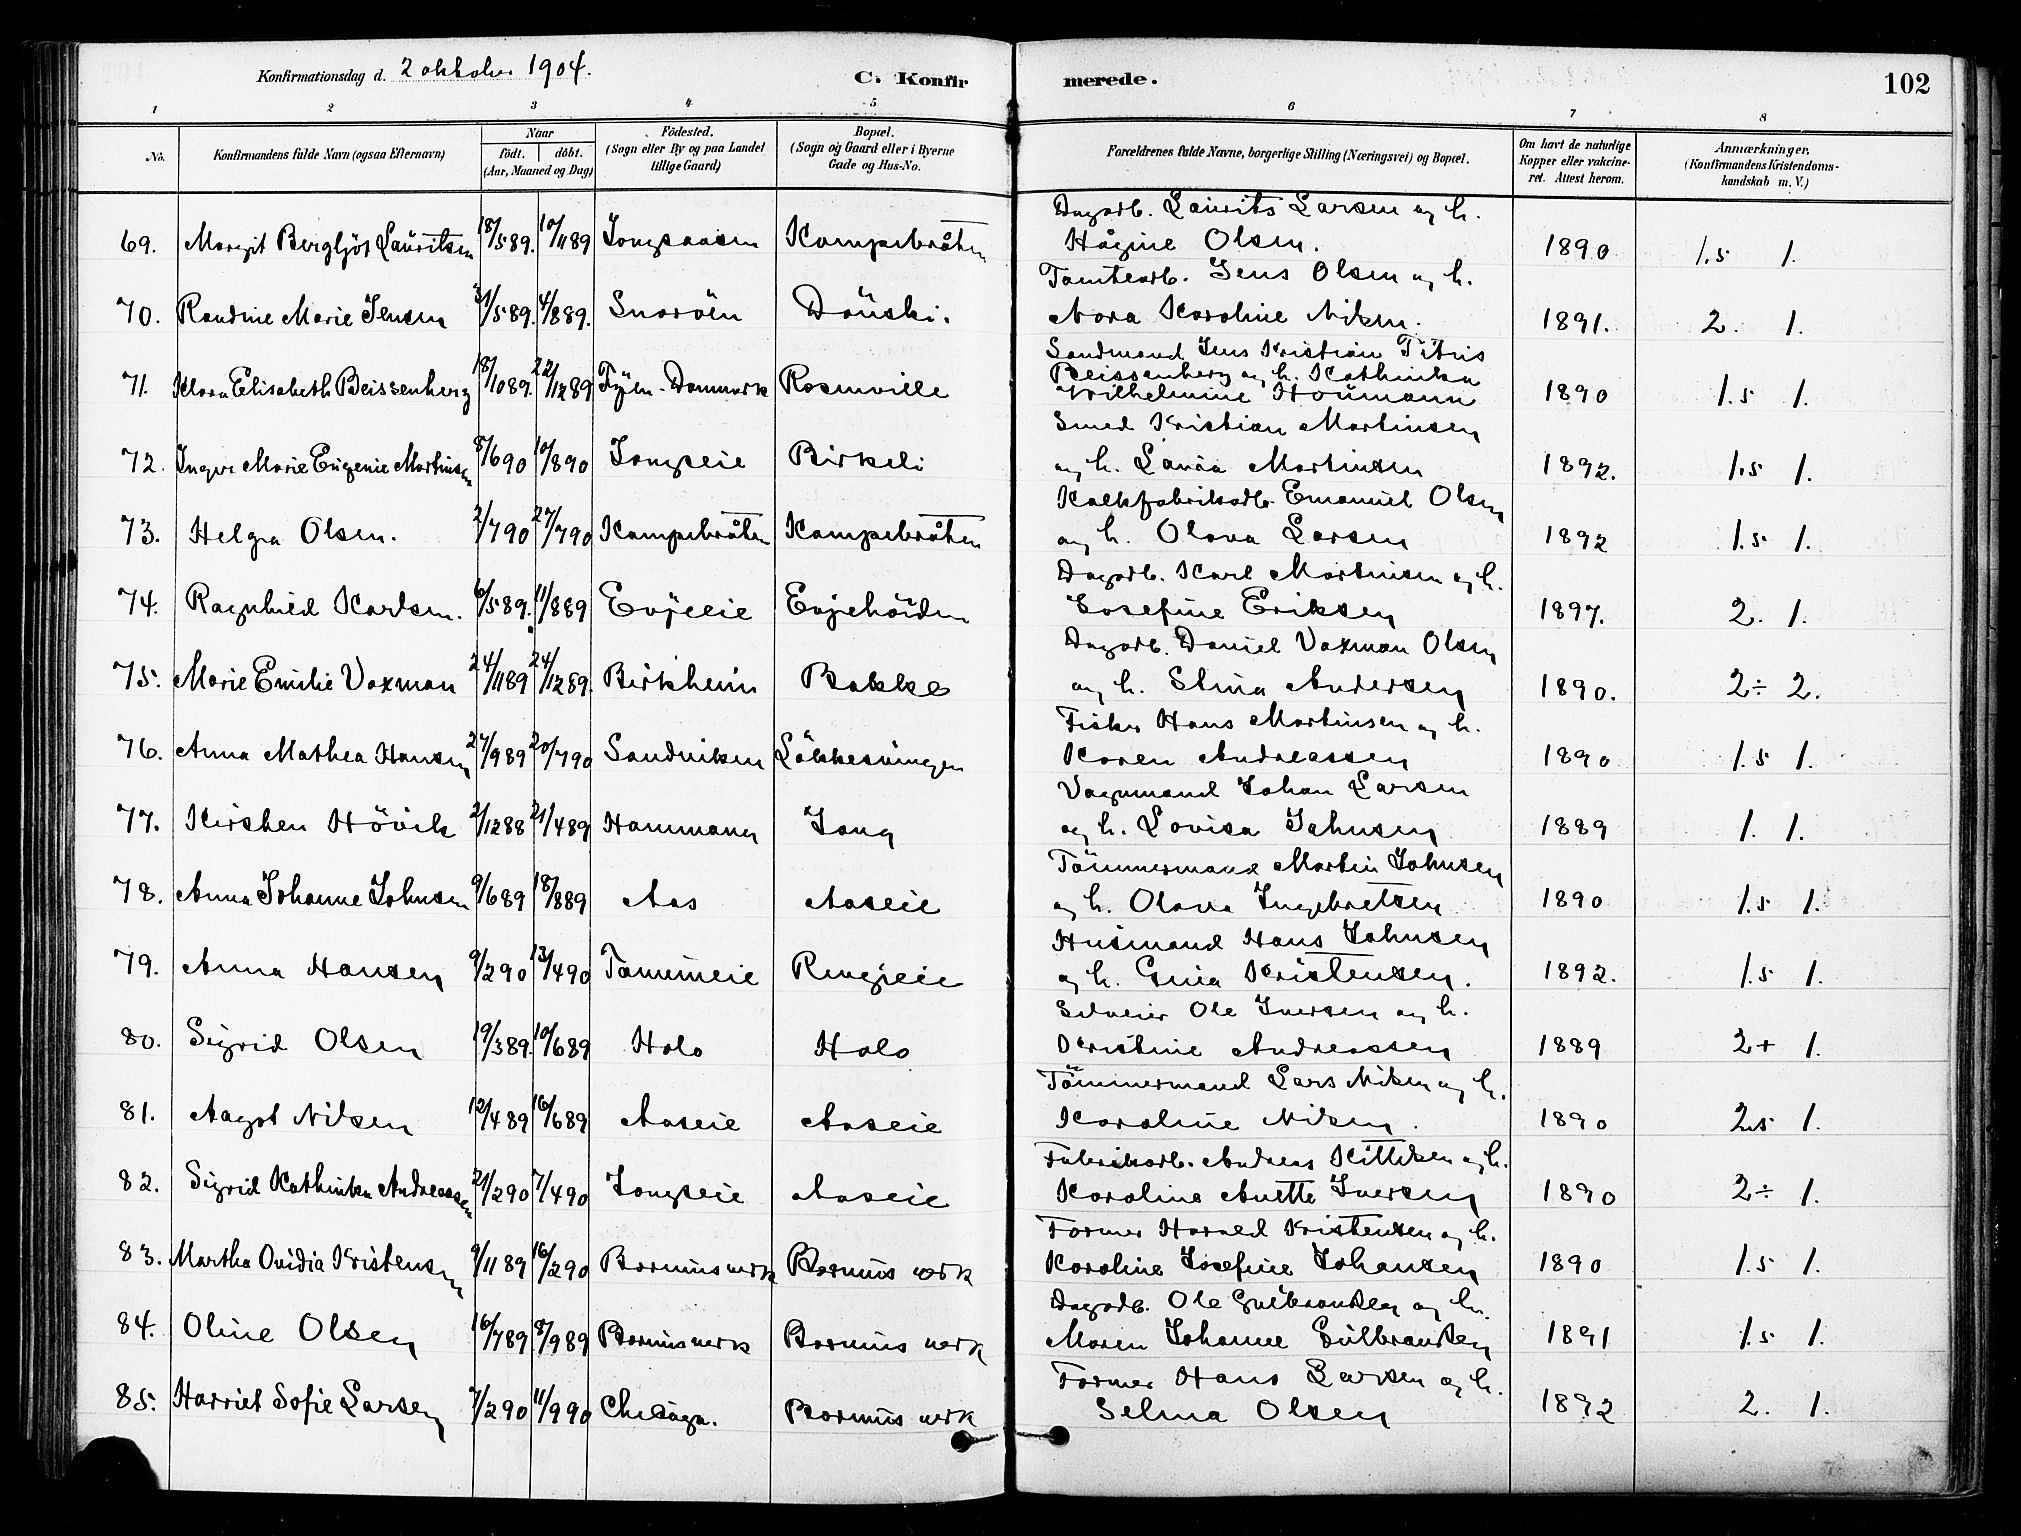 Konfirmationsdag d. 2 oktober 1904.
C. Konfirmerede.
102
1 2 3 4 5 6 7 8
No.
Konfirmandens fulde Navn (ogsaa Efternavn)
Naar
födt. döbt.
(Aar, Maaned og Dag)
Födested.
(Sogn eller By og paa Landet
tillige Gaard)
Bopæl.
(Sogn og Gaard eller i Byerne
Gade og Hus-No.
Forældrenes fulde Navne, borgerlige Stilling (Næringsvei) og Bopæl.
Om havt de naturlige
Kopper eller vakcine-
ret. Attest herom.
Anmærkninger.
(Konfirmandens Kristendoms-
kundskab m. V.)
Dagarb. Laurits Larsen og h.
69. Margit Bergljot Lauritsen 18/5 89. 10/11 89 Jongsaasen Kampebråten Hågine Olsen. 1890 1.5 1.
Tomtearb. Jens Olsen og h.
70. Randine Marie Jensen 31/5 89. 4/8 89. Snaröen Dönski. Nora Karoline Nilsen. 1891. 2. 1.
Sandmand Jens Kristian Titus
Beissenherz og h. Kathinka
71. Klara Elisabeth Beissenherz 18/10 89. 22/12 89 Fyen-Danmark Rosenville Wilhelmine Houmann 1890 1.5 1.
Smed Kristian Martinsen
72. Inger Marie Eugenie Martinsen 8/6 90 10/8 90 Jongseie Birkeli og h. Laura Martinsen 1892. 1.5 1.
Kalkfabrikarb. Emanuel Olsen
73. Helga Olsen. 2/7 90 27/7 90 Kampebråten Kampebråten og h. Olava Larsen 1892 1.5 1.
Dagarb. Karl Martinsen og h.
74. Ragnhild Karlsen. 6/5 89. 11/8 89 Evjeeie Evjehöiden Josefine Eriksen 1897. 2. 1.
Dagarb. Daniel Vaxman Olsen
75. Marie Emilie Vaxman 24/11 89 24/12 89. Birkheim Bakke og h. Stina Andersen 1890. 2÷ 2.
Fisker Hans Martinsen og h.
76. Anna Mathea Hansen 27/9 89 20/7 90 Sandviken Lökkesvingen Karen Andreassen 1890 1.5 1.
Vognmand Johan Larsen
77. Kirsten Hövik 2/12 88 21/4 89 Hammang Jong og h. Lovisa Jahnsen 1889 1. 1.
Tömmermand Martin Johnsen
78. Anna Johanne Johnsen 9/6 89 18/8 89 Aas Aaseie og h. Olava Ingebretsen 1890 1.5 1.
Husmand Hans Johnsen
79. Anna Hansen 9/2 90 13/4 90 Tanumeie Ringieie og h. Gina Kristensen. 1892. 1.5 1.
Selveier Ole Iversen og h.
80. Sigrid Olsen 19/3 89. 10/6 89 Halo Halo Kristine Andreassen 1889 2+ 1.
Tömmermand Lars Nilsen og h.
81. Aagot Nilsen 12/4 89 16/6 89 Aaseie Aaseie Karoline Nilsen. 1890 2.5 1.
Fabrikarb. Andreas Kittilsen og h.
82. Sigrid Kathinka Andreassen 21/2 90 7/4 90 Jongseie Aaseie Karoline Anette Iversen 1890 2÷ 1.
Former Harald Kristensen og h.
83. Martha Ovidia Kristensen 9/11 89 16/2 90 Bærums verk Bærums verk Karoline Josefine Johansen 1890 1.5 1.
Dagarb. Ole Gulbrandsen og h.
84. Oline Olsen 16/7 89 8/9 89 Bærums verk Bærums verk Maren Johanne Gulbrandsen 1891 1.5 1.
Former Hans Larsen og h.
85. Harriet Sofie Larsen 7/2 90 11/9 90 Chicago. Bærums verk Selma Olsen 1892 2. 1.